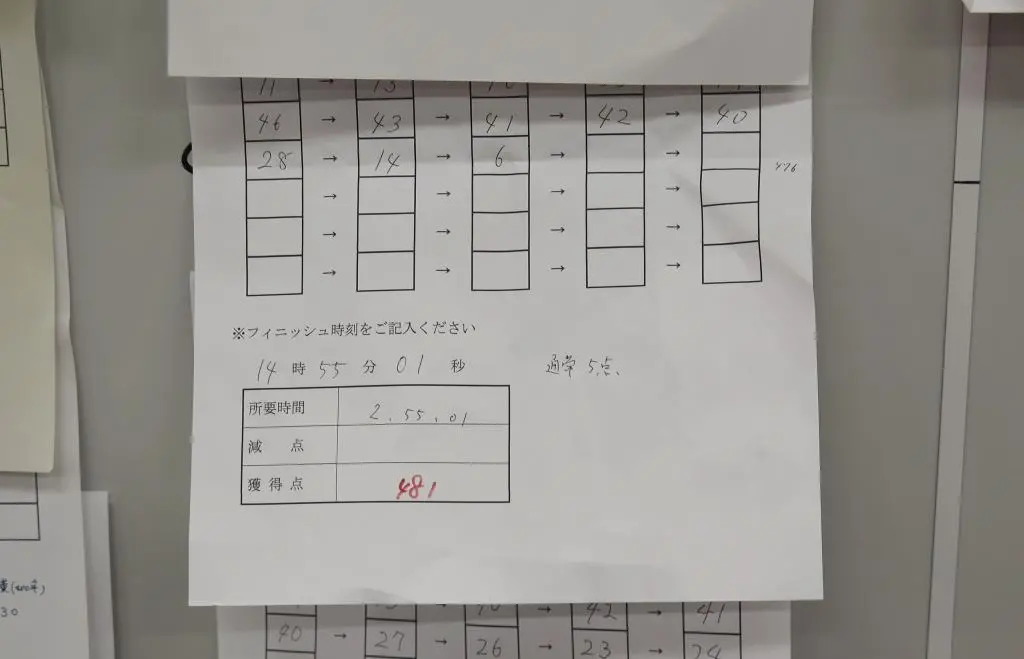 46 → 43 → 41 → 42 → 40
28 → 14 → 6 → →
476
→ → → →
→ → → →
→ → → →
※フィニッシュ時刻をご記入ください
14 時 55 分 01 秒
通常 5点、
所要時間 2.55.01
減 点
獲得点 481
30
42 → 41
40 → 27 → 26 → 23 → 24